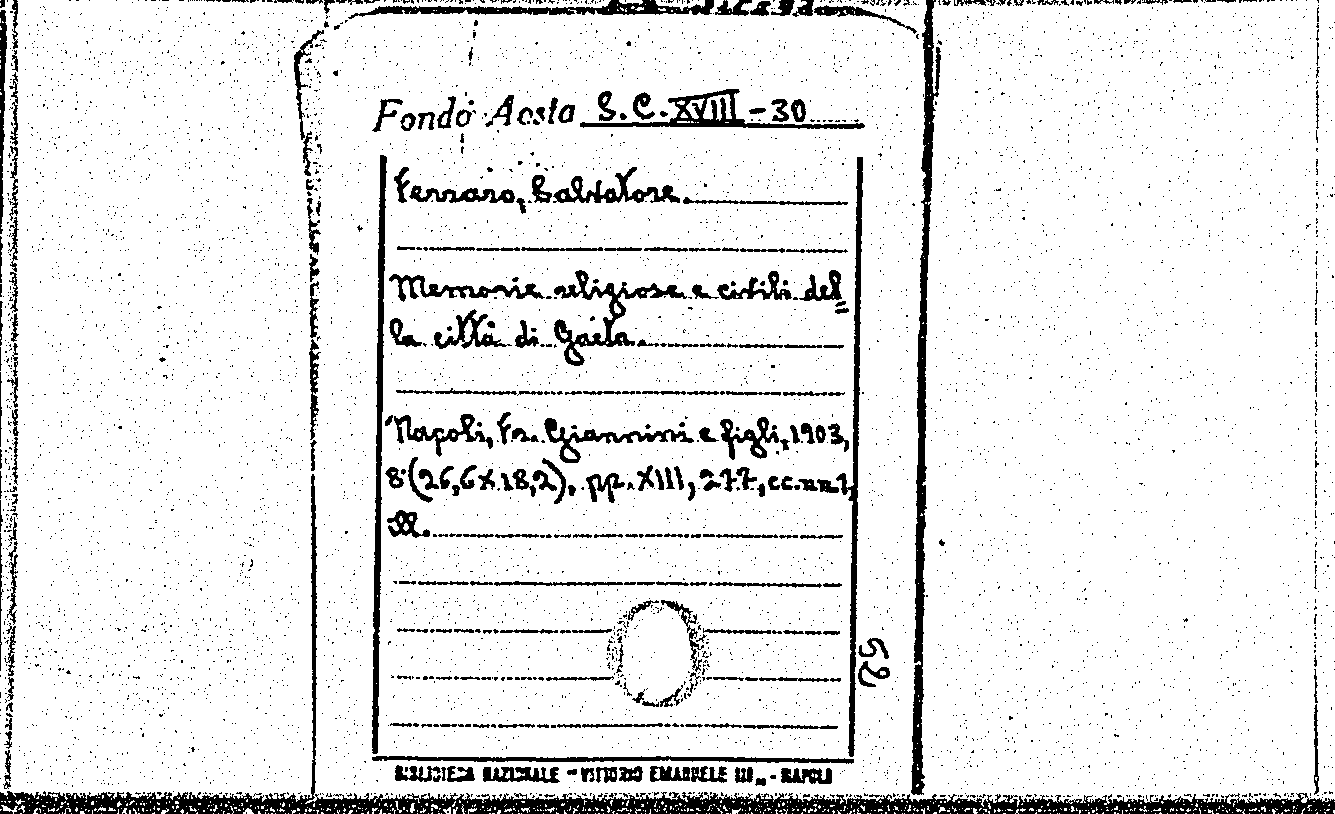 Fondo Aosta S.C. XVIII - 30
Ferraro, Salvatore.
Memorie religiose e civili del=
la città di Gaeta.
Napoli, Fr. Giannini e figli, 1903,
8° (26,6 x 18,2), pp. XIII, 277, cc. nn 1,
ill.
52
BIBLIOTECA NAZIONALE "VITTORIO EMANUELE III" - NAPOLI